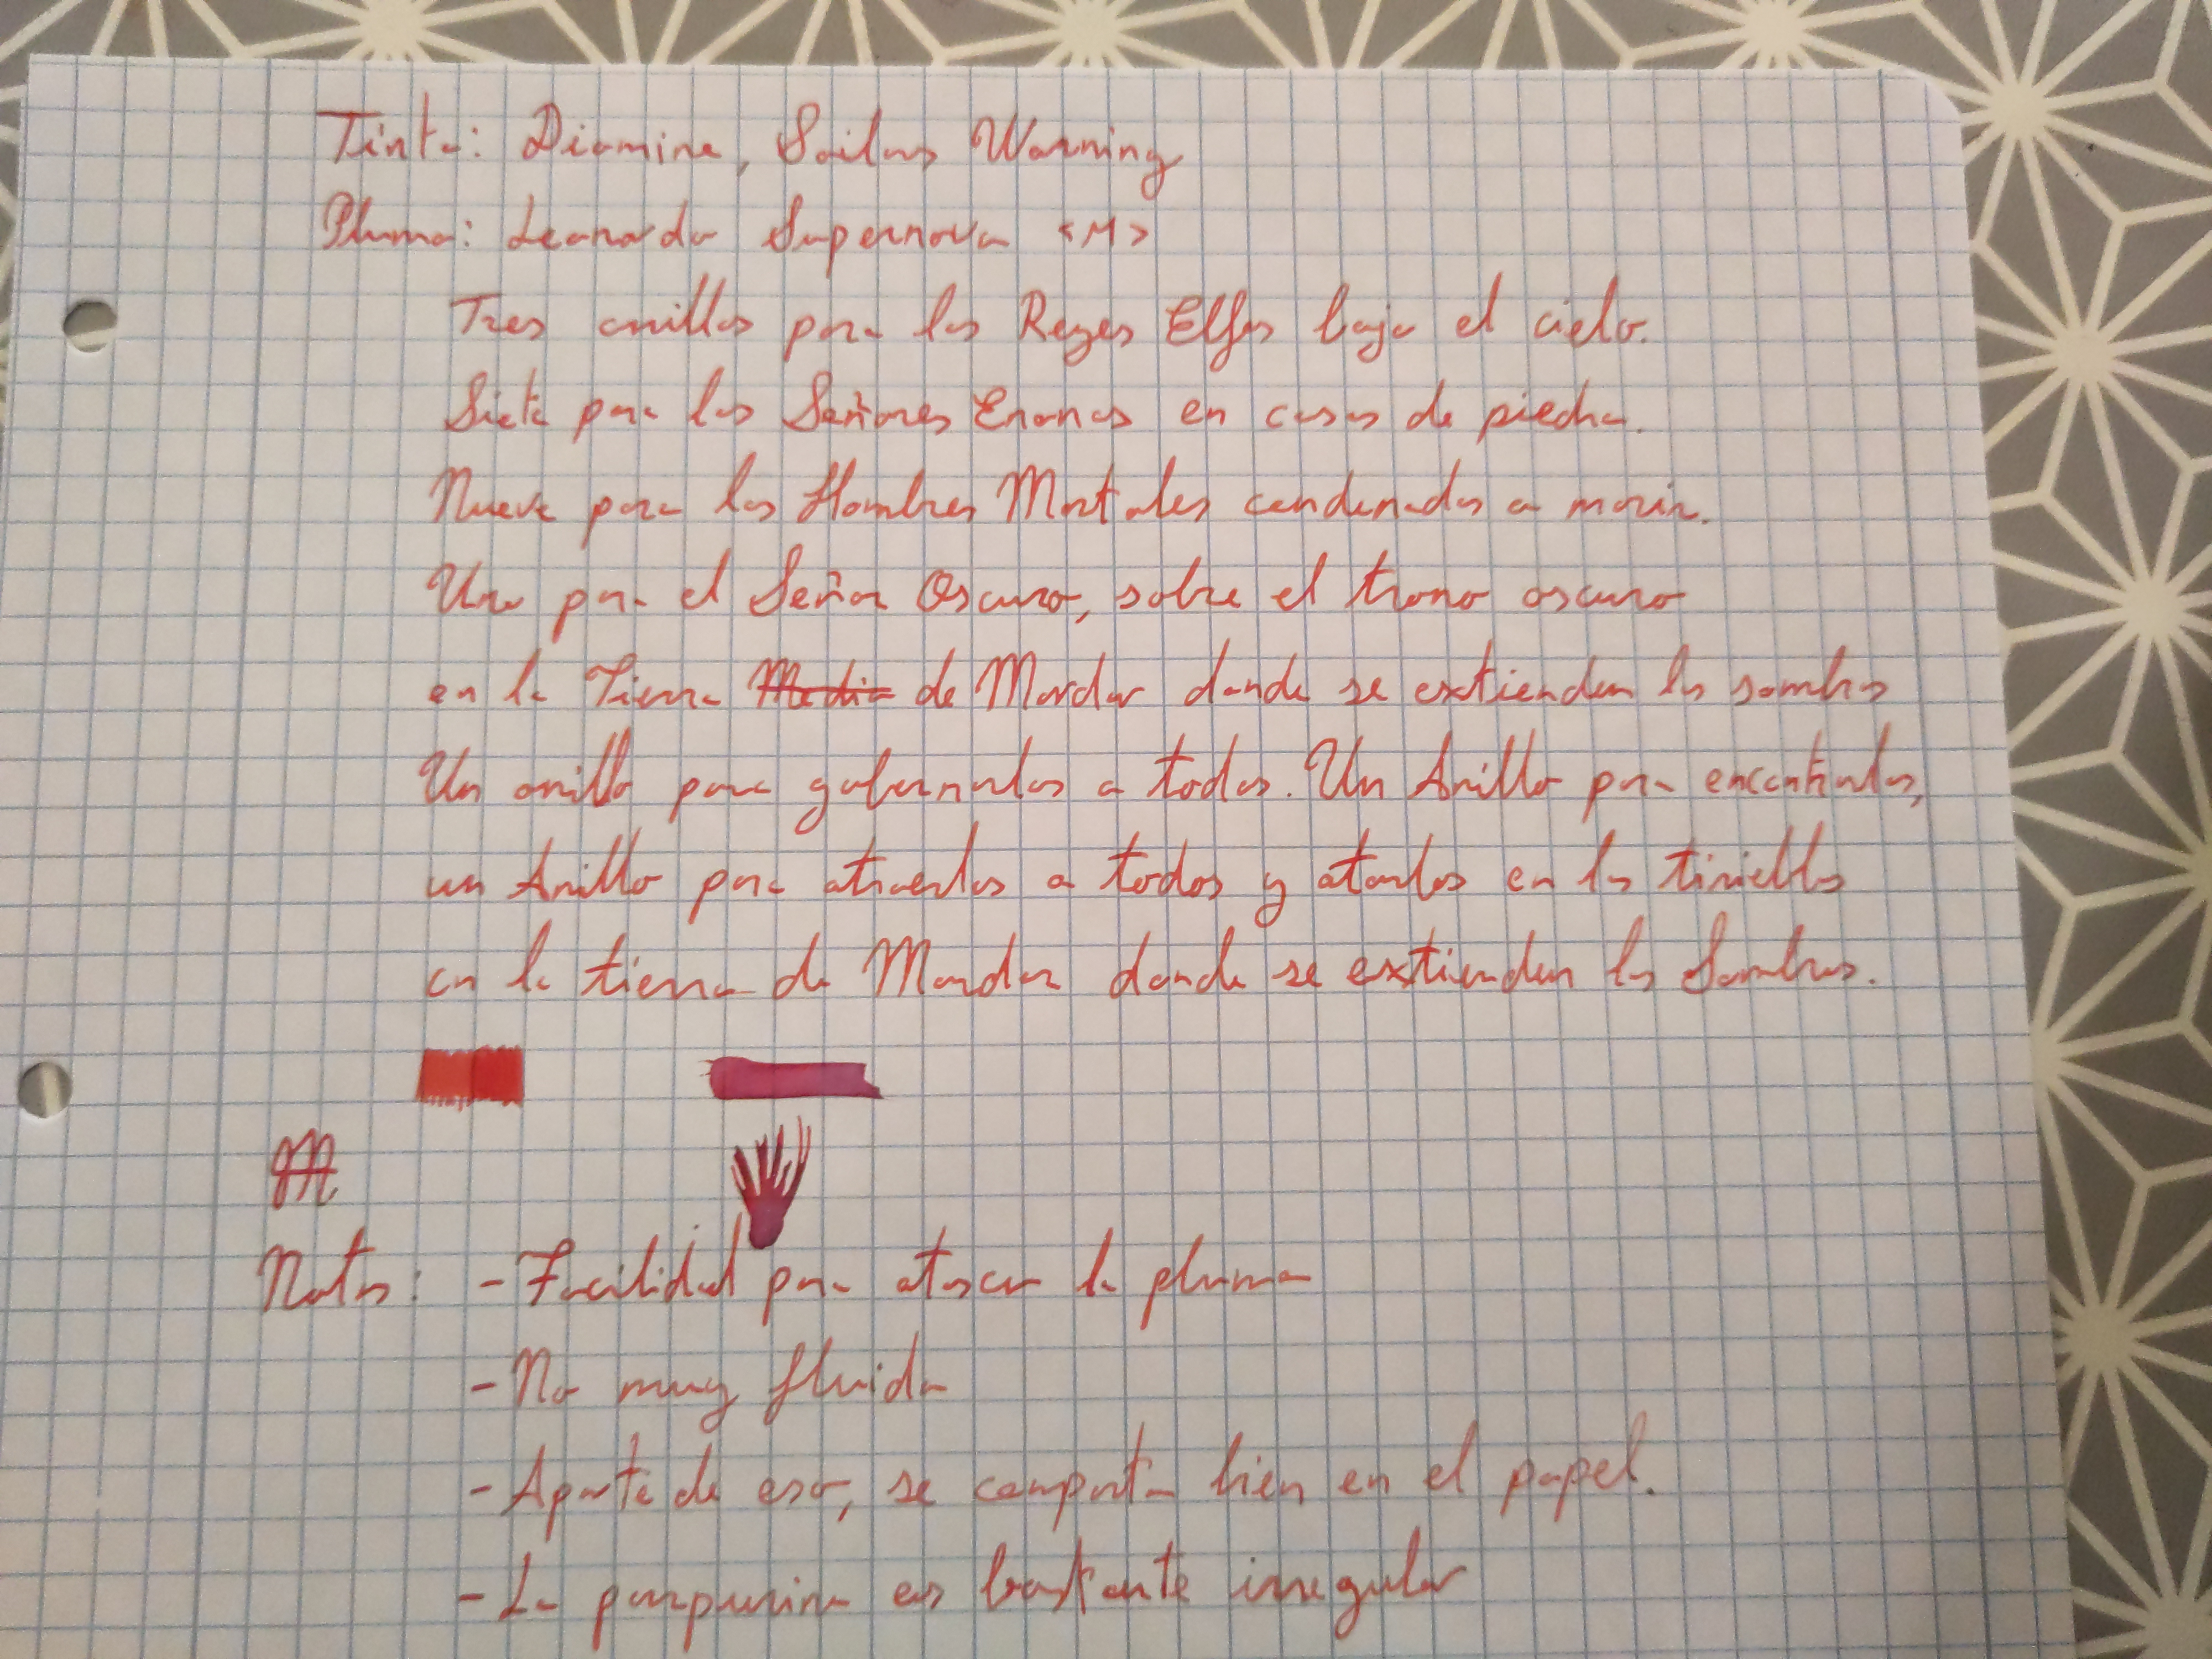 Tinta: Diamine, Sailors Warning
Pluma: Leonardo Supernova <M>
Tres anillos para los Reyes Elfos bajo el cielo.
Siete para los Señores Enanos en casas de piedra.
Nueve para los Hombres Mortales condenados a morir.
Uno para el Señor Oscuro, sobre el trono oscuro
en la Tierra Media de Mordor donde se extienden las sombras
Un anillo para gobernarlos a todos. Un Anillo para encontrarlos,
un Anillo para atraerlos a todos y atarlos en las tinieblas
en la tierra de Mordor donde se extienden las Sombras.
M
Notas: - Facilidad para atascar la pluma
- No muy fluida
- Aparte de eso, se comporta bien en el papel.
- La purpurina es bastante irregular